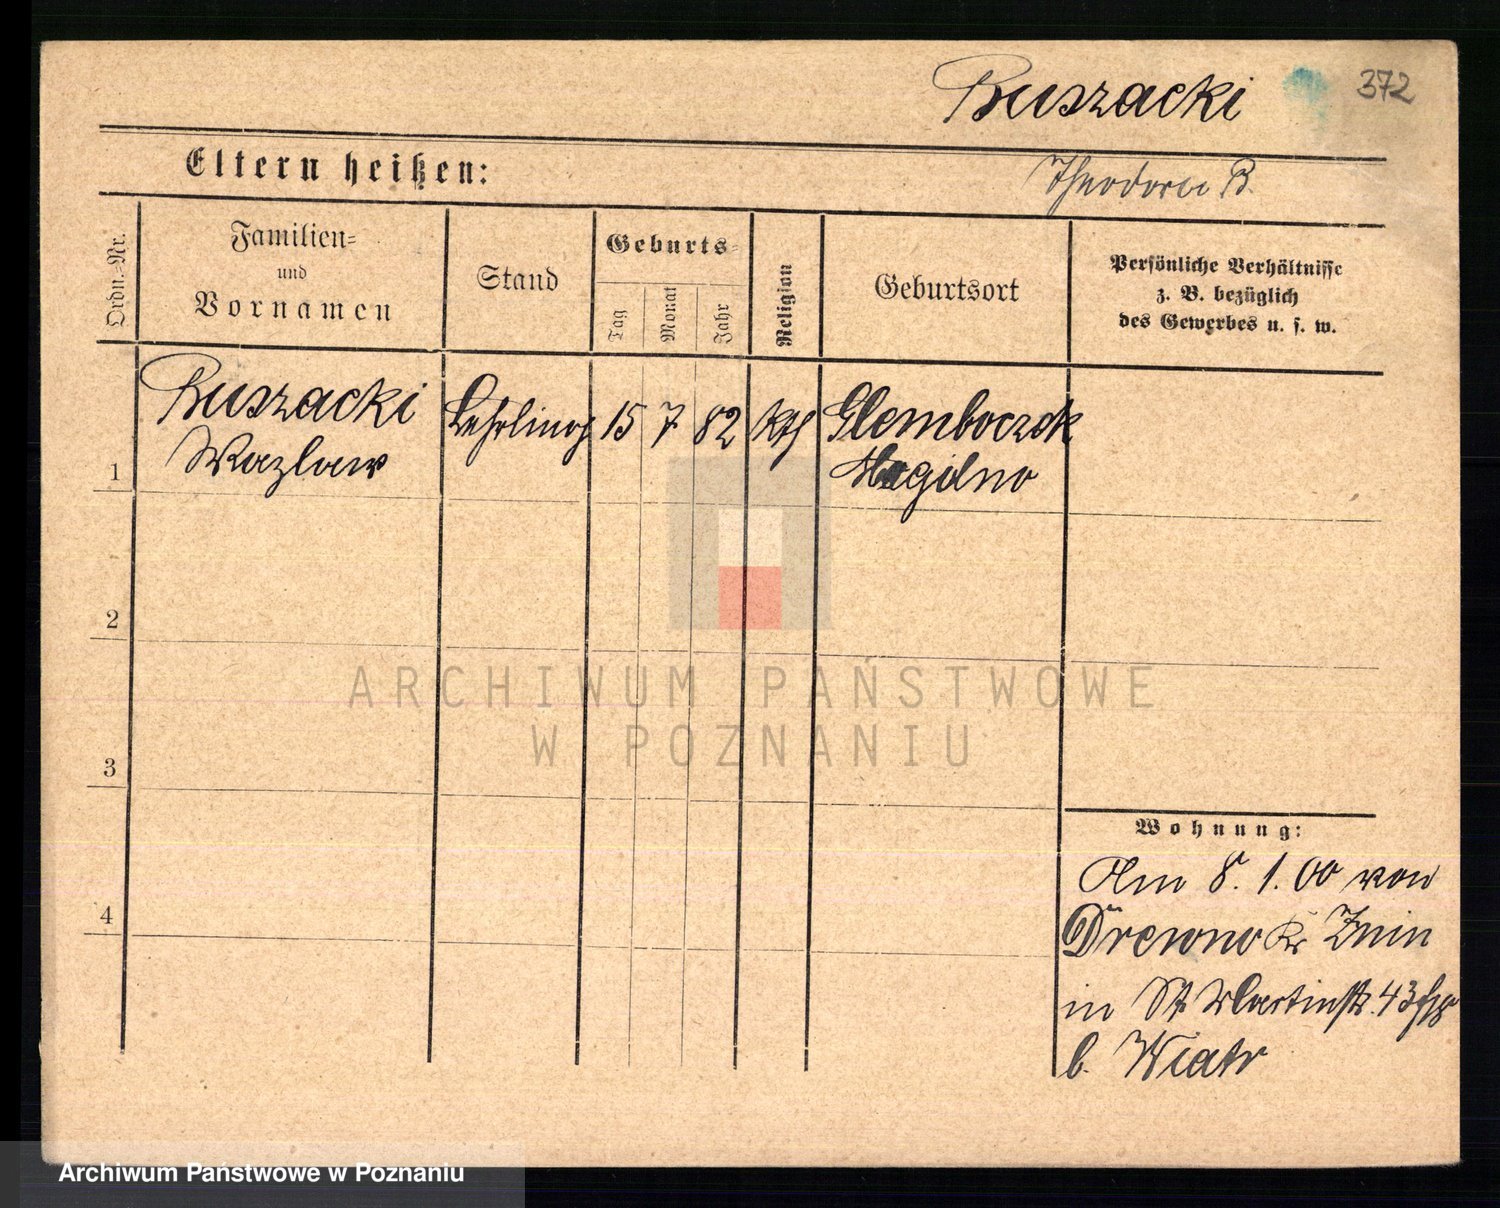 Buszacki
372
Eltern heißen:
Theodora B.
Ordn.=Nr.
Familien=
und
Vornamen
Stand
Geburts=
Tag
Monat
Jahr
Religion
Geburtsort
Persönliche Verhältnisse
z. B. bezüglich
des Gewerbes u. s. w.
1
Buszacki
Wazlaw
Lehrling
15
7
82
kth
Glemboczek
Mogilno
2
3
4
ARCHIWUM PAŃSTWOWE
W POZNANIU
Wohnung:
Am 8. 1. 00 von
Drewno Kr Znin
in St Martinstr. 43
b. Wiatr
Archiwum Państwowe w Poznaniu